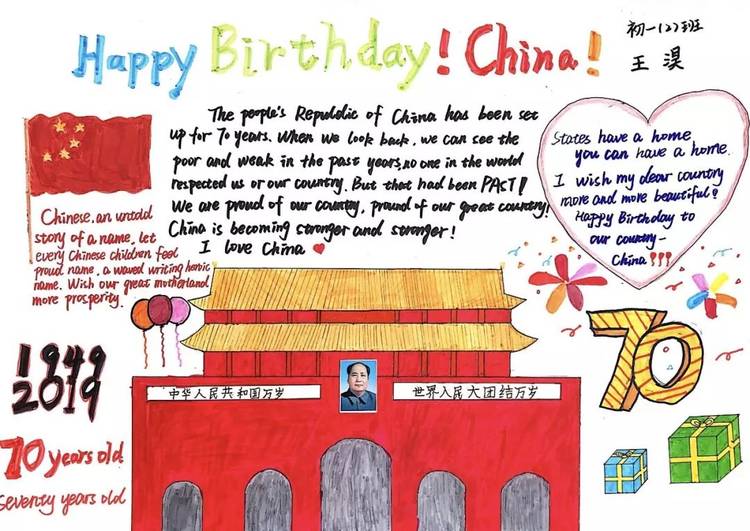 Happy Birthday! China!
初一(2)班
王淏
The people's Republic of China has been set
up for 70 years. When we look back, we can see the
poor and weak in the past years, no one in the world
respected us or our country. But that had been PAST!
We are proud of our country, proud of our great country!
China is becoming stronger and stronger!
I love China
States have a home
you can have a home.
I wish my dear country
more and more beautiful!
Happy Birthday to
our country-
China!!!
Chinese, an untold
story of a name, let
every Chinese children feel
proud name, a waved writing heroic
name. Wish our great motherland
more prosperity.
1949
2019
70 years old
seventy years old
70
中华人民共和国万岁
世界人民大团结万岁